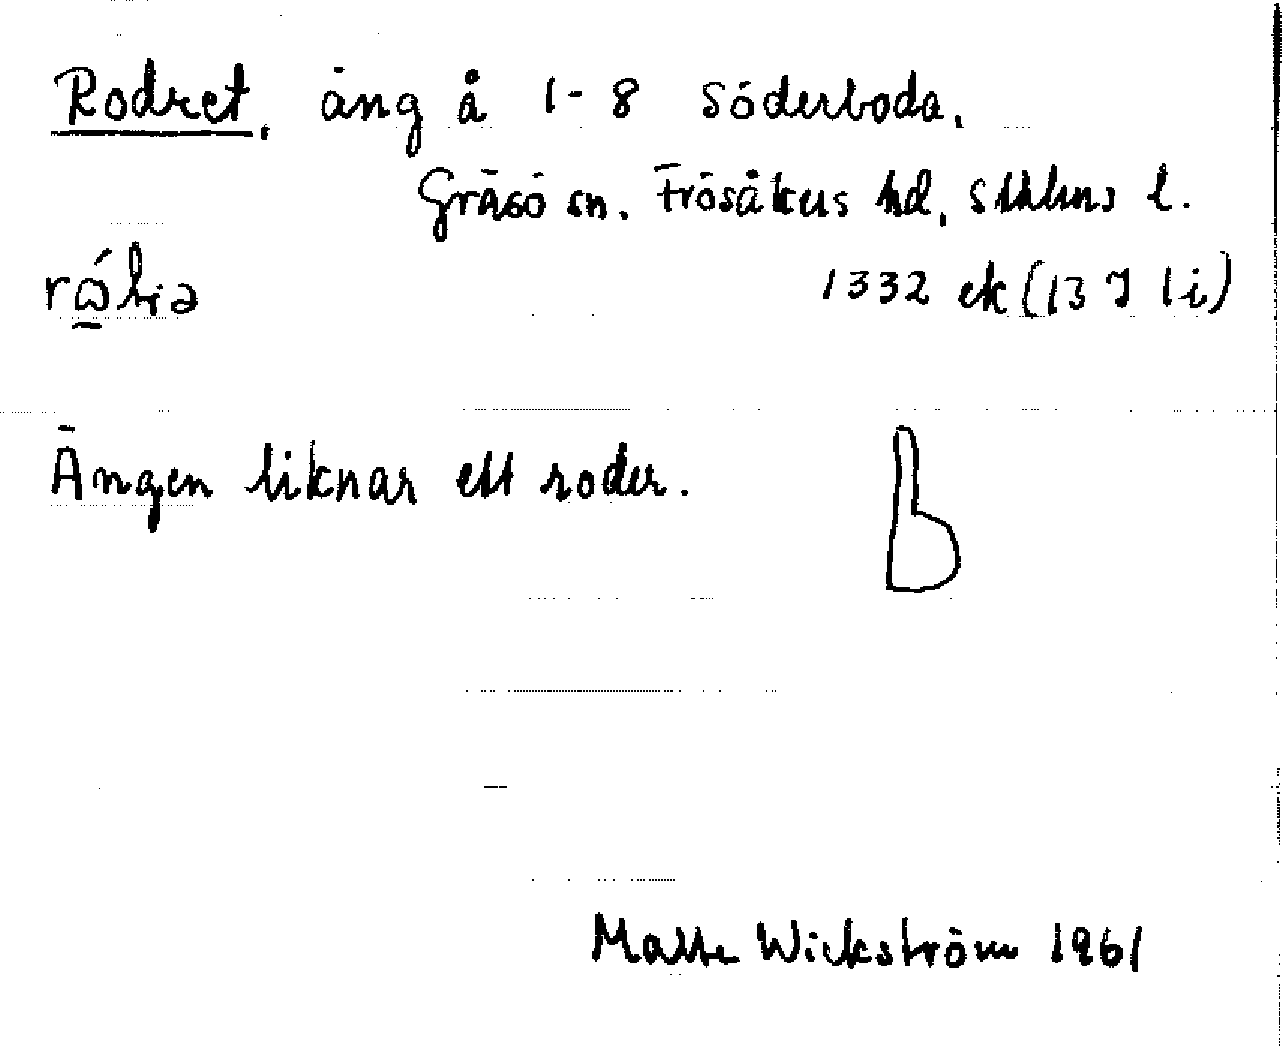 Rodret, äng å 1-8 Söderboda,
Gräsö sn. Frösåkers hd, Sthlms l.
1332 ek (13 I 1i)
Ängen liknar ett roder.
Matts Wickström 1961